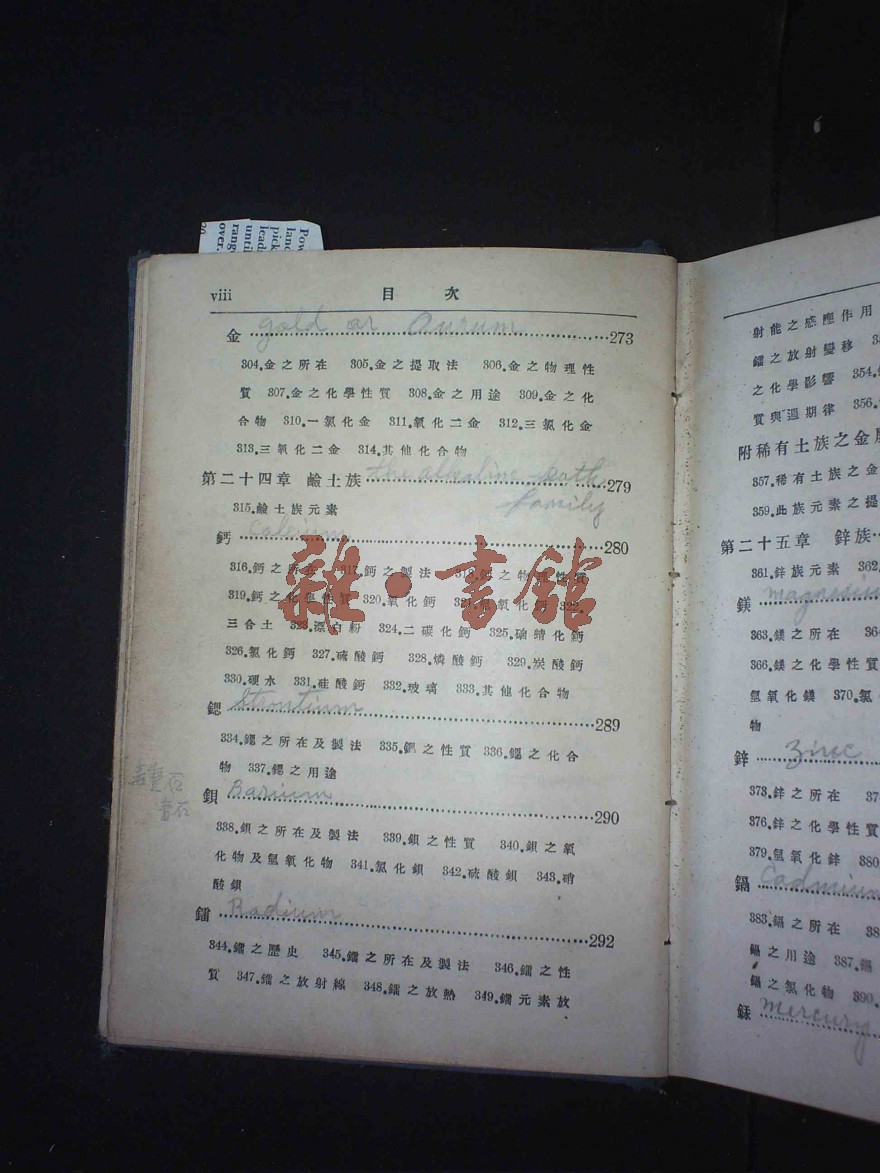 Pow
land
pick
lead
until
rang
over.
viii 目 次
金 gold or Aurum 273
304.金之所在 305.金之提取法 306.金之物理性
質 307.金之化學性質 308.金之用途 309.金之化
合物 310.一氯化金 311.氧化二金 312.三氯化金
313.三氧化二金 314.其他化合物
第二十四章 鹼土族 the alkaline earth 279
family
315.鹼土族元素
鈣 Calcium 280
316.鈣之所在 317.鈣之製法 318.鈣之物理性質
319.鈣之化學性質 320.氧化鈣 321.氫氧化鈣 322.
三合土 323.漂白粉 324.二碳化鈣 325.
326.氯化鈣 327.硫酸鈣 328.燐酸鈣 329.炭酸鈣
330.硬水 331.硅酸鈣 332.玻璃 333.其他化合物
鍶 Strontium 289
334.鍶之所在及製法 335.鍶之性質 336.鍶之化合
物 337.鍶之用途
重石
鋇 Barium 290
338.鋇之所在及製法 339.鋇之性質 340.鋇之氧
化物及氫氧化物 341.氯化鋇 342.硫酸鋇 343.硝
酸鋇
鐳 Radium 292
344.鐳之歷史 345.鐳之所在及製法 346.鐳之性
質 347.鐳之放射線 348.鐳之放熱 349.鐳元素放
雜·書館
射能之感應作用
鐳之放射變移
之化學影響 354.
質與週期律 356.
附稀有土族之金屬
357.稀有土族之金
359.此族元素之提
第二十五章 鋅族
361.鋅族元素 362.
鎂 Magnesium
363.鎂之所在 364
366.鎂之化學性質
氫氧化鎂 370.氯
物
鋅 Zinc
373.鋅之所在 37
376.鋅之化學性質
379.氫氧化鋅 380
鎘 Cadmium
383.鎘之所在 38
鎘之用途 387.鎘
鎘之氯化物 390.
銾 Mercury